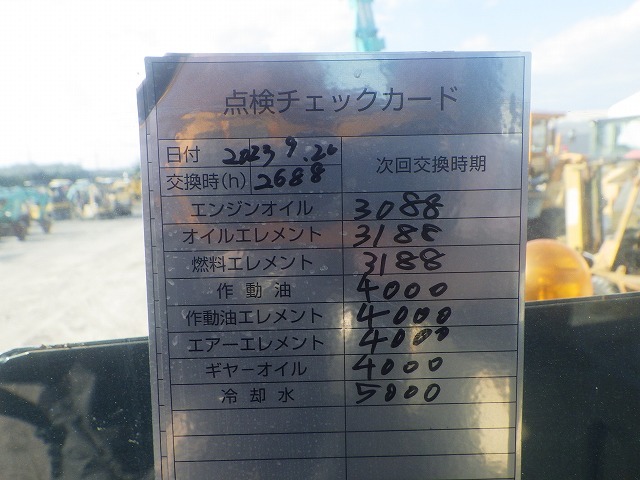 点検チェックカード
日付 2023 9.26
交換時(h) 2688
次回交換時期
エンジンオイル 3088
オイルエレメント 3188
燃料エレメント 3188
作動油 4000
作動油エレメント 4000
エアーエレメント 4000
ギヤーオイル 4000
冷却水 5000